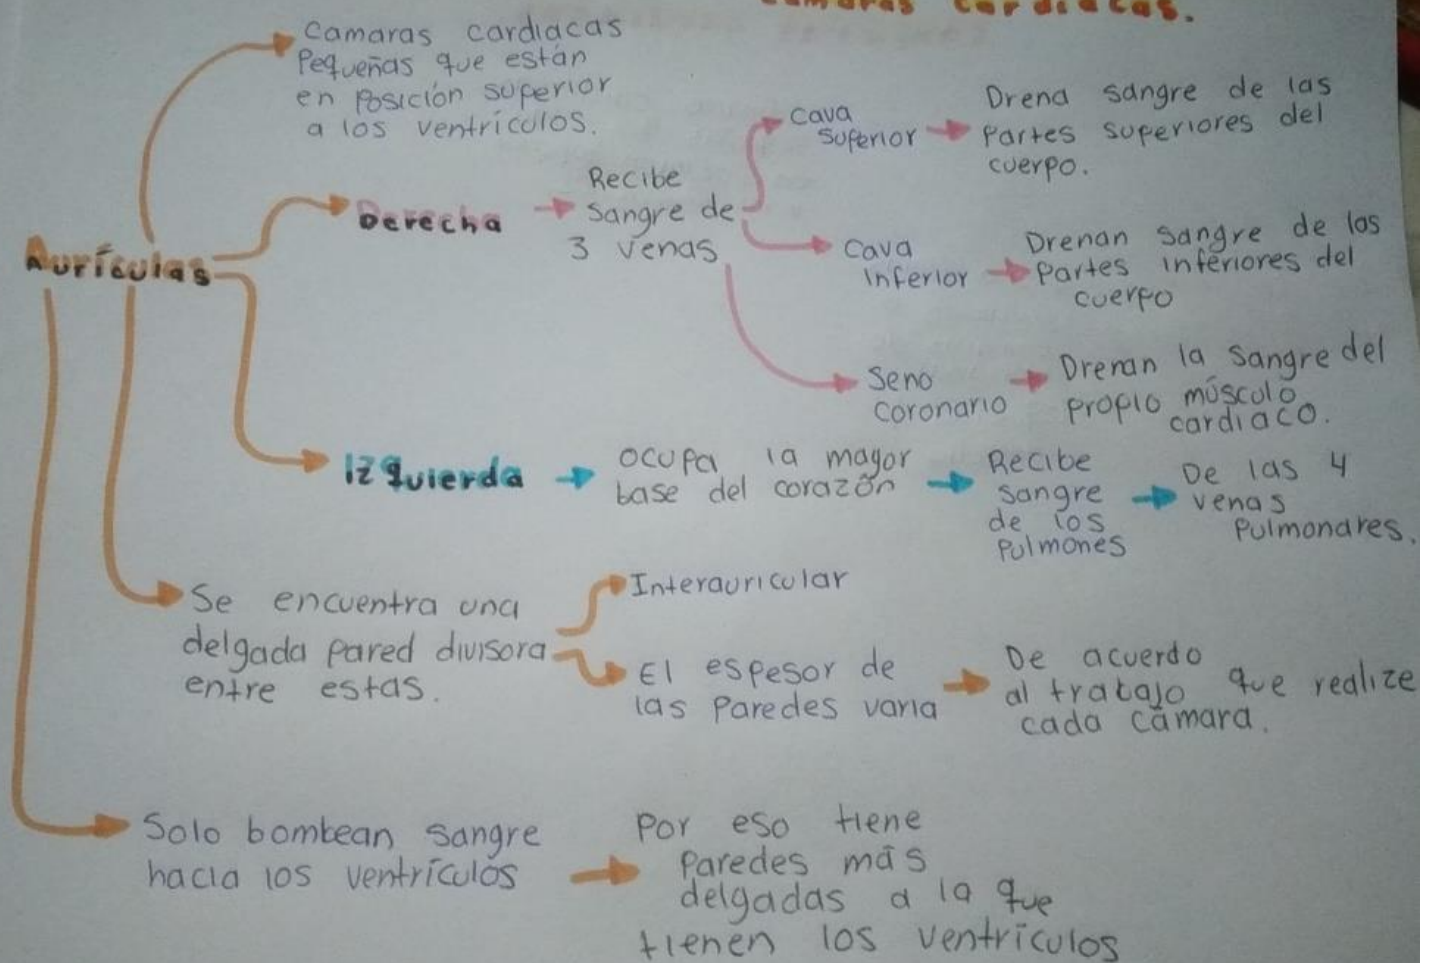 cardiacas.
Camaras cardiacas
Pequeñas que están
en Posición superior
a los ventrículos.
Aurículas
Derecha
Recibe
Sangre de
3 venas
Cava
Superior
Drena sangre de las
Partes superiores del
cuerpo.
Cava
Inferior
Drenan sangre de las
Partes inferiores del
cuerpo
Seno
coronario
Drenan la sangre del
propio músculo
cardiaco.
Izquierda
ocupa la mayor
base del corazón
Recibe
sangre
de los
Pulmones
De las 4
venas
Pulmonares.
Se encuentra una
delgada pared divisora
entre estas.
Interauricular
El espesor de
las Paredes varia
De acuerdo
al trabajo que realize
cada cámara.
Solo bombean sangre
hacia los ventrículos
Por eso tiene
Paredes más
delgadas a la que
tienen los ventrículos